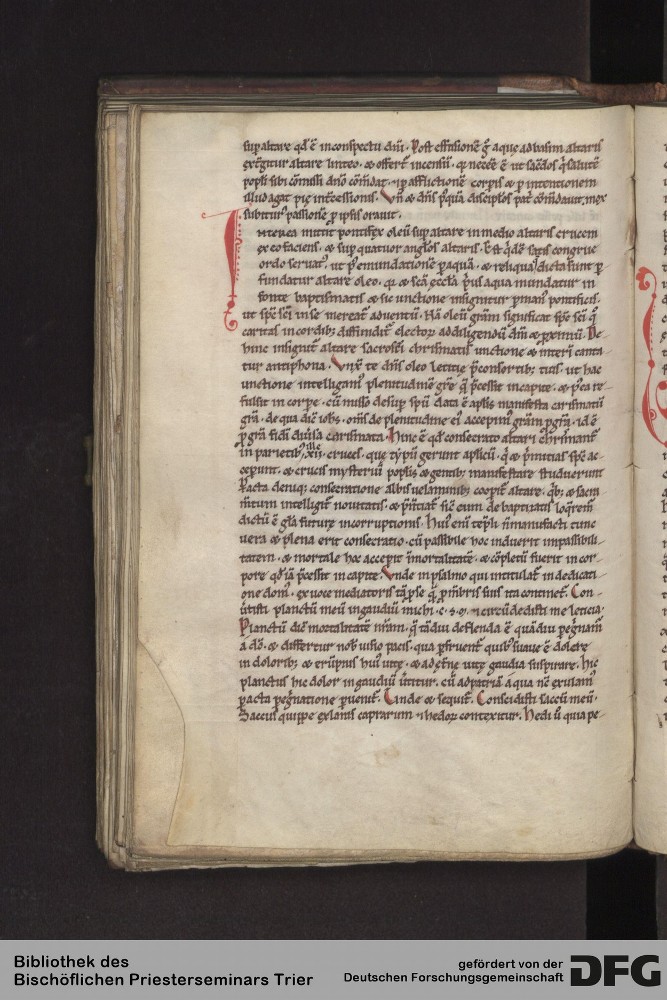 sup altare qđ ē in conspectu dñi. Post effusionē g̊ aque ad basim altaris
exͭgitur altare linteo. & offert᷑ incensū. q̇ necēē ē ut sacͤdos q̇ salutē
popli sibi cōmissi dño cōmdat. ⁊ p afflictionē corpis & p intentionem
illud agat pię intͨessionis. Vñ & dñs pꝰquā discipłos patͥ cōmdauit, mox
subiturꝰ passionē p ipsis orauit.
Interea mittit pontifex oleū sup altare in medio altaris crucem
ex eo faciens. & sup quatuor anglos altaris. Est q̇dē satis congruꝰ
ordo seruatꝰ. ut pꝰ emundationē p aquā. & reliqua dicta sunt p
fundatur altare oleo. q̇ & scā ecclā pͥus aqua mundatur in
fonte baptismatis & sic unctione insignitur p manū pontificis.
ut spc̄ sc̄i in se mereat᷑ aduentū. Nā oleū grām significat spc̄ sc̄i q̇
caritas in cordibꝫ diffundit᷑ electoꝝ ad diligendū dm̄ & pximū. De
hinc insignit᷑ altare sacrosc̄i chrismatis unctione & interī canta
tur antiphona. Vnx̄ te dn̄s oleo letitię p̄ consortibꝫ tuis. ut hac
unctione intelligamꝰ plenitudinē grē q̄ p̄cessit in capite. & pꝰea re
fulsit in corpe. cū misso desup spū data ē aplis manifesta carismatū
grā. de qua dic̄ iohs. om̄s de plenitudine eiꝰ accepimꝰ grām p grā. id ē
p grā fidei diūsa carismata. Hinc ē qđ consecrato altari chrismant᷑
in parietibꝫ illę .xii. cruces. que typū gerunt aplicū. q̇ & pͥmitias spc̄ ac
ceperunt. & crucis mysteriū poplis & gentibꝫ manifestare studuerunt
Facta deniqꝫ consecratione albis uelaminibꝫ coopit᷑ altare. q̇bꝫ & sacra
mtum intelligit᷑ nouitatis. & p̄nūtiat᷑ sic̄ cum de baptizatis loq̄rem᷑
dictū ē gła futurę incorruptionis. Huiꝰ eni tēpli n̄ manufacti tunc
uera & plena erit consecratio. cū passibile hoc induerit impassibili
tatem. & mortale hoc accepit īmortalitatē. & cōpletū fuerit in cor
pore qđ iā p̄cessit in capite. Vnde in psalmo qui intitulat᷑ in dedicati
one domꝰ. ex uoce mediatoris tā p se q̄ p mbris suis ita continet᷑. Con
ūtisti planctū meū in gaudiū michi. c. s. m. ⁊ circūdedisti me leticia.
Planctū dic̄ mortalitatē nrām. q̄ tādiu deflenda ē quādiu pegnam᷑
a dō. & differtur nob uisio pacis. qua pfruent᷑ quibꝫ suaue ē dolere
in doloribꝫ & erūpnis huiꝰ uitę. & ad etͥnę uitę gaudia suspirare. Hic
planctus hic dolor in gaudiū ūtitur. cū ad patriā a qua nc̄ exulamꝰ
pacta pegͥnatione puenit᷑. Vnde & sequit᷑. Conscidisti saccū meū.
Saccus quippe ex lanis caprarum ⁊ hedoꝝ contexitur. Hedi ū quia pe
Bibliothek des
Bischöflichen Priesterseminars Trier
gefördert von der
Deutschen Forschungsgemeinschaft
DFG